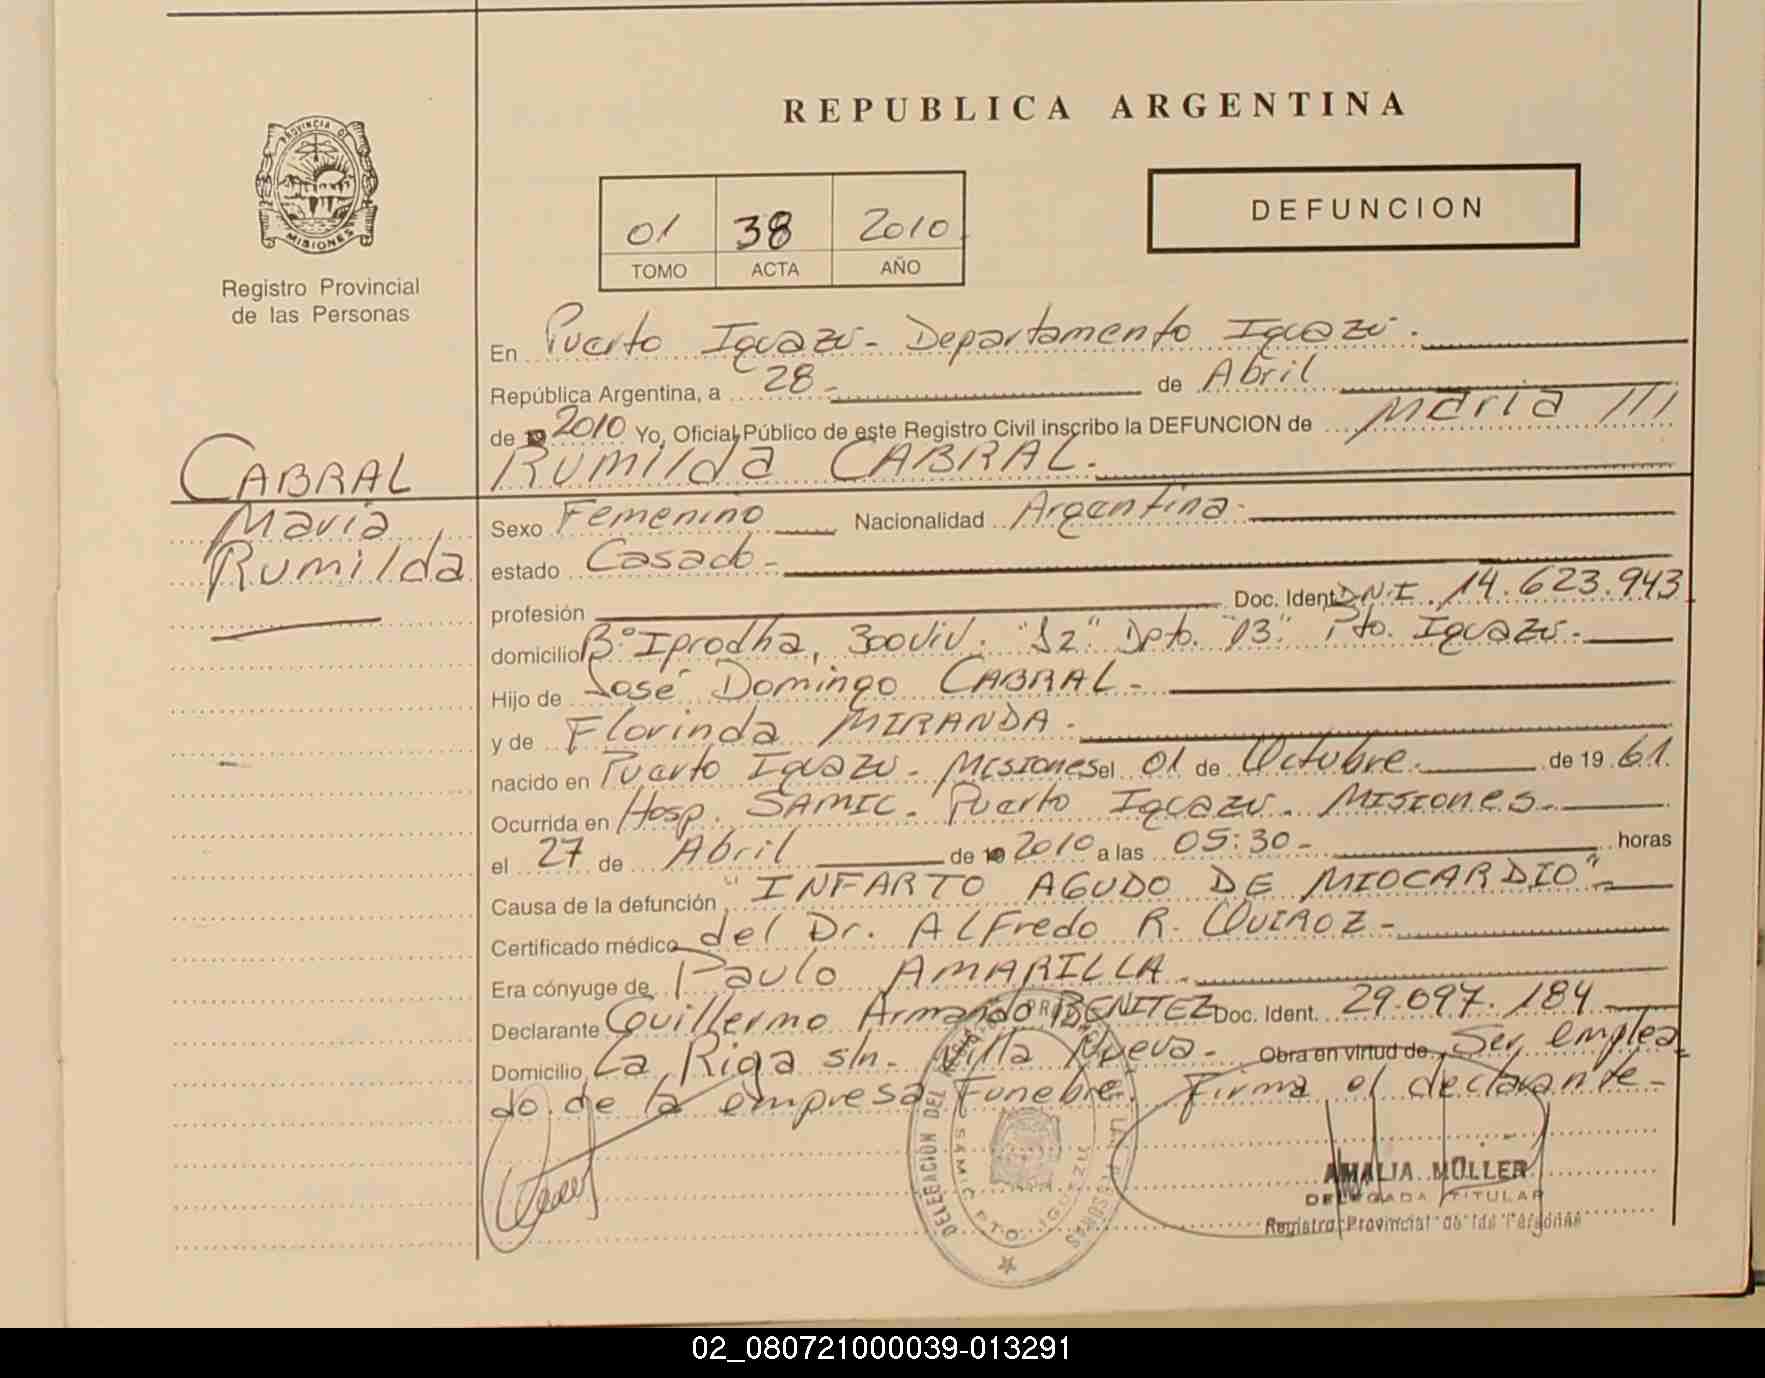 REPUBLICA ARGENTINA
PROVINCIA DE
MISIONES
Registro Provincial
de las Personas
01 38 2010
TOMO ACTA AÑO
DEFUNCION
En Puerto Iguazú - Departamento Iguazú.
República Argentina, a 28 - de Abril
de 2010 Yo, Oficial Público de este Registro Civil inscribo la DEFUNCION de Maria ///
Rumilda CABRAL.-
CABRAL
Maria
Rumilda
Sexo Femenino Nacionalidad Argentina-
estado Casado -
profesión Doc. Ident. D.N.I. 14.623.943
domicilio B° Iprodha, 300 Viv. Dpto. "13" Pto. Iguazú.-
Hijo de José Domingo CABRAL -
y de Florinda MIRANDA -
nacido en Puerto Iguazú - Misiones el 01 de Octubre. de 19 61.
Ocurrida en Hosp. SAMIC - Puerto Iguazú - Misiones -
el 27 de Abril de 2010 a las 05:30 - horas
Causa de la defunción "INFARTO AGUDO DE MIOCARDIO" -
Certificado médico del Dr. Alfredo R. QUIROZ -
Era cónyuge de Paulo AMARILLA -
Declarante Guillermo Armando BENITEZ Doc. Ident. 29.097.184
Domicilio La Riga s/n - Villa Nueva - Obra en virtud de Ser emplea
do de la empresa Funebre. Firma el declarante -
DELEGACIÓN DEL
SAMIC PTO. IGUAZU
AMALIA MÜLLER
DELEGADA TITULAR
Registro Provincial de las Personas
02_080721000039-013291